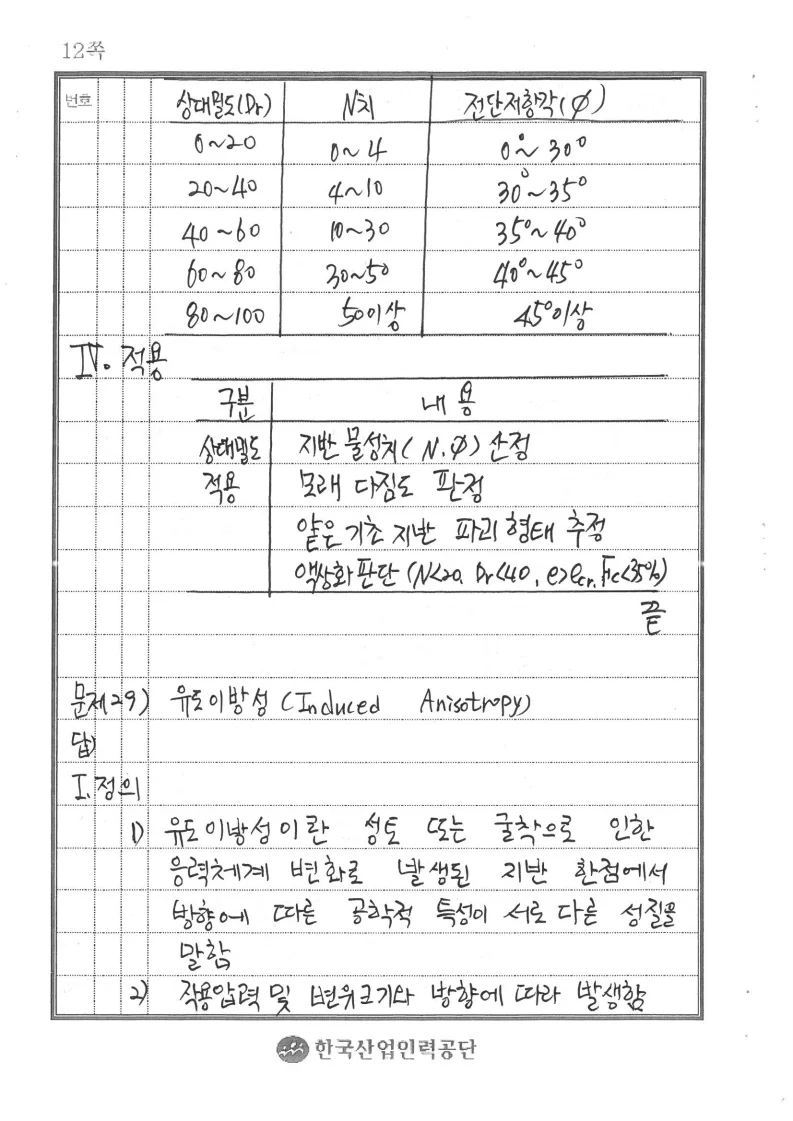 12쪽
번호 상대밀도(Dr) N치 전단저항각(Ø)
0~20 0~4 0°~30°
20~40 4~10 30°~35°
40~60 10~30 35°~40°
60~80 30~50 40°~45°
80~100 50이상 45°이상
IV. 적용
구분 내용
상대밀도 지반 물성치(N.Ø) 산정
적용 모래 다짐도 판정
얕은기초 지반 파괴형태 추정
액상화 판단 (N<20, Dr<40, e>ecr, Fc<35%)
끝
문제29) 유도이방성 (Induced Anisotropy)
답)
I. 정의
1) 유도이방성이란 성토 또는 굴착으로 인한
응력체계 변화로 발생된 지반 한점에서
방향에 따른 공학적 특성이 서로 다른 성질을
말함
2) 작용압력 및 변위크기와 방향에 따라 발생함
한국산업인력공단